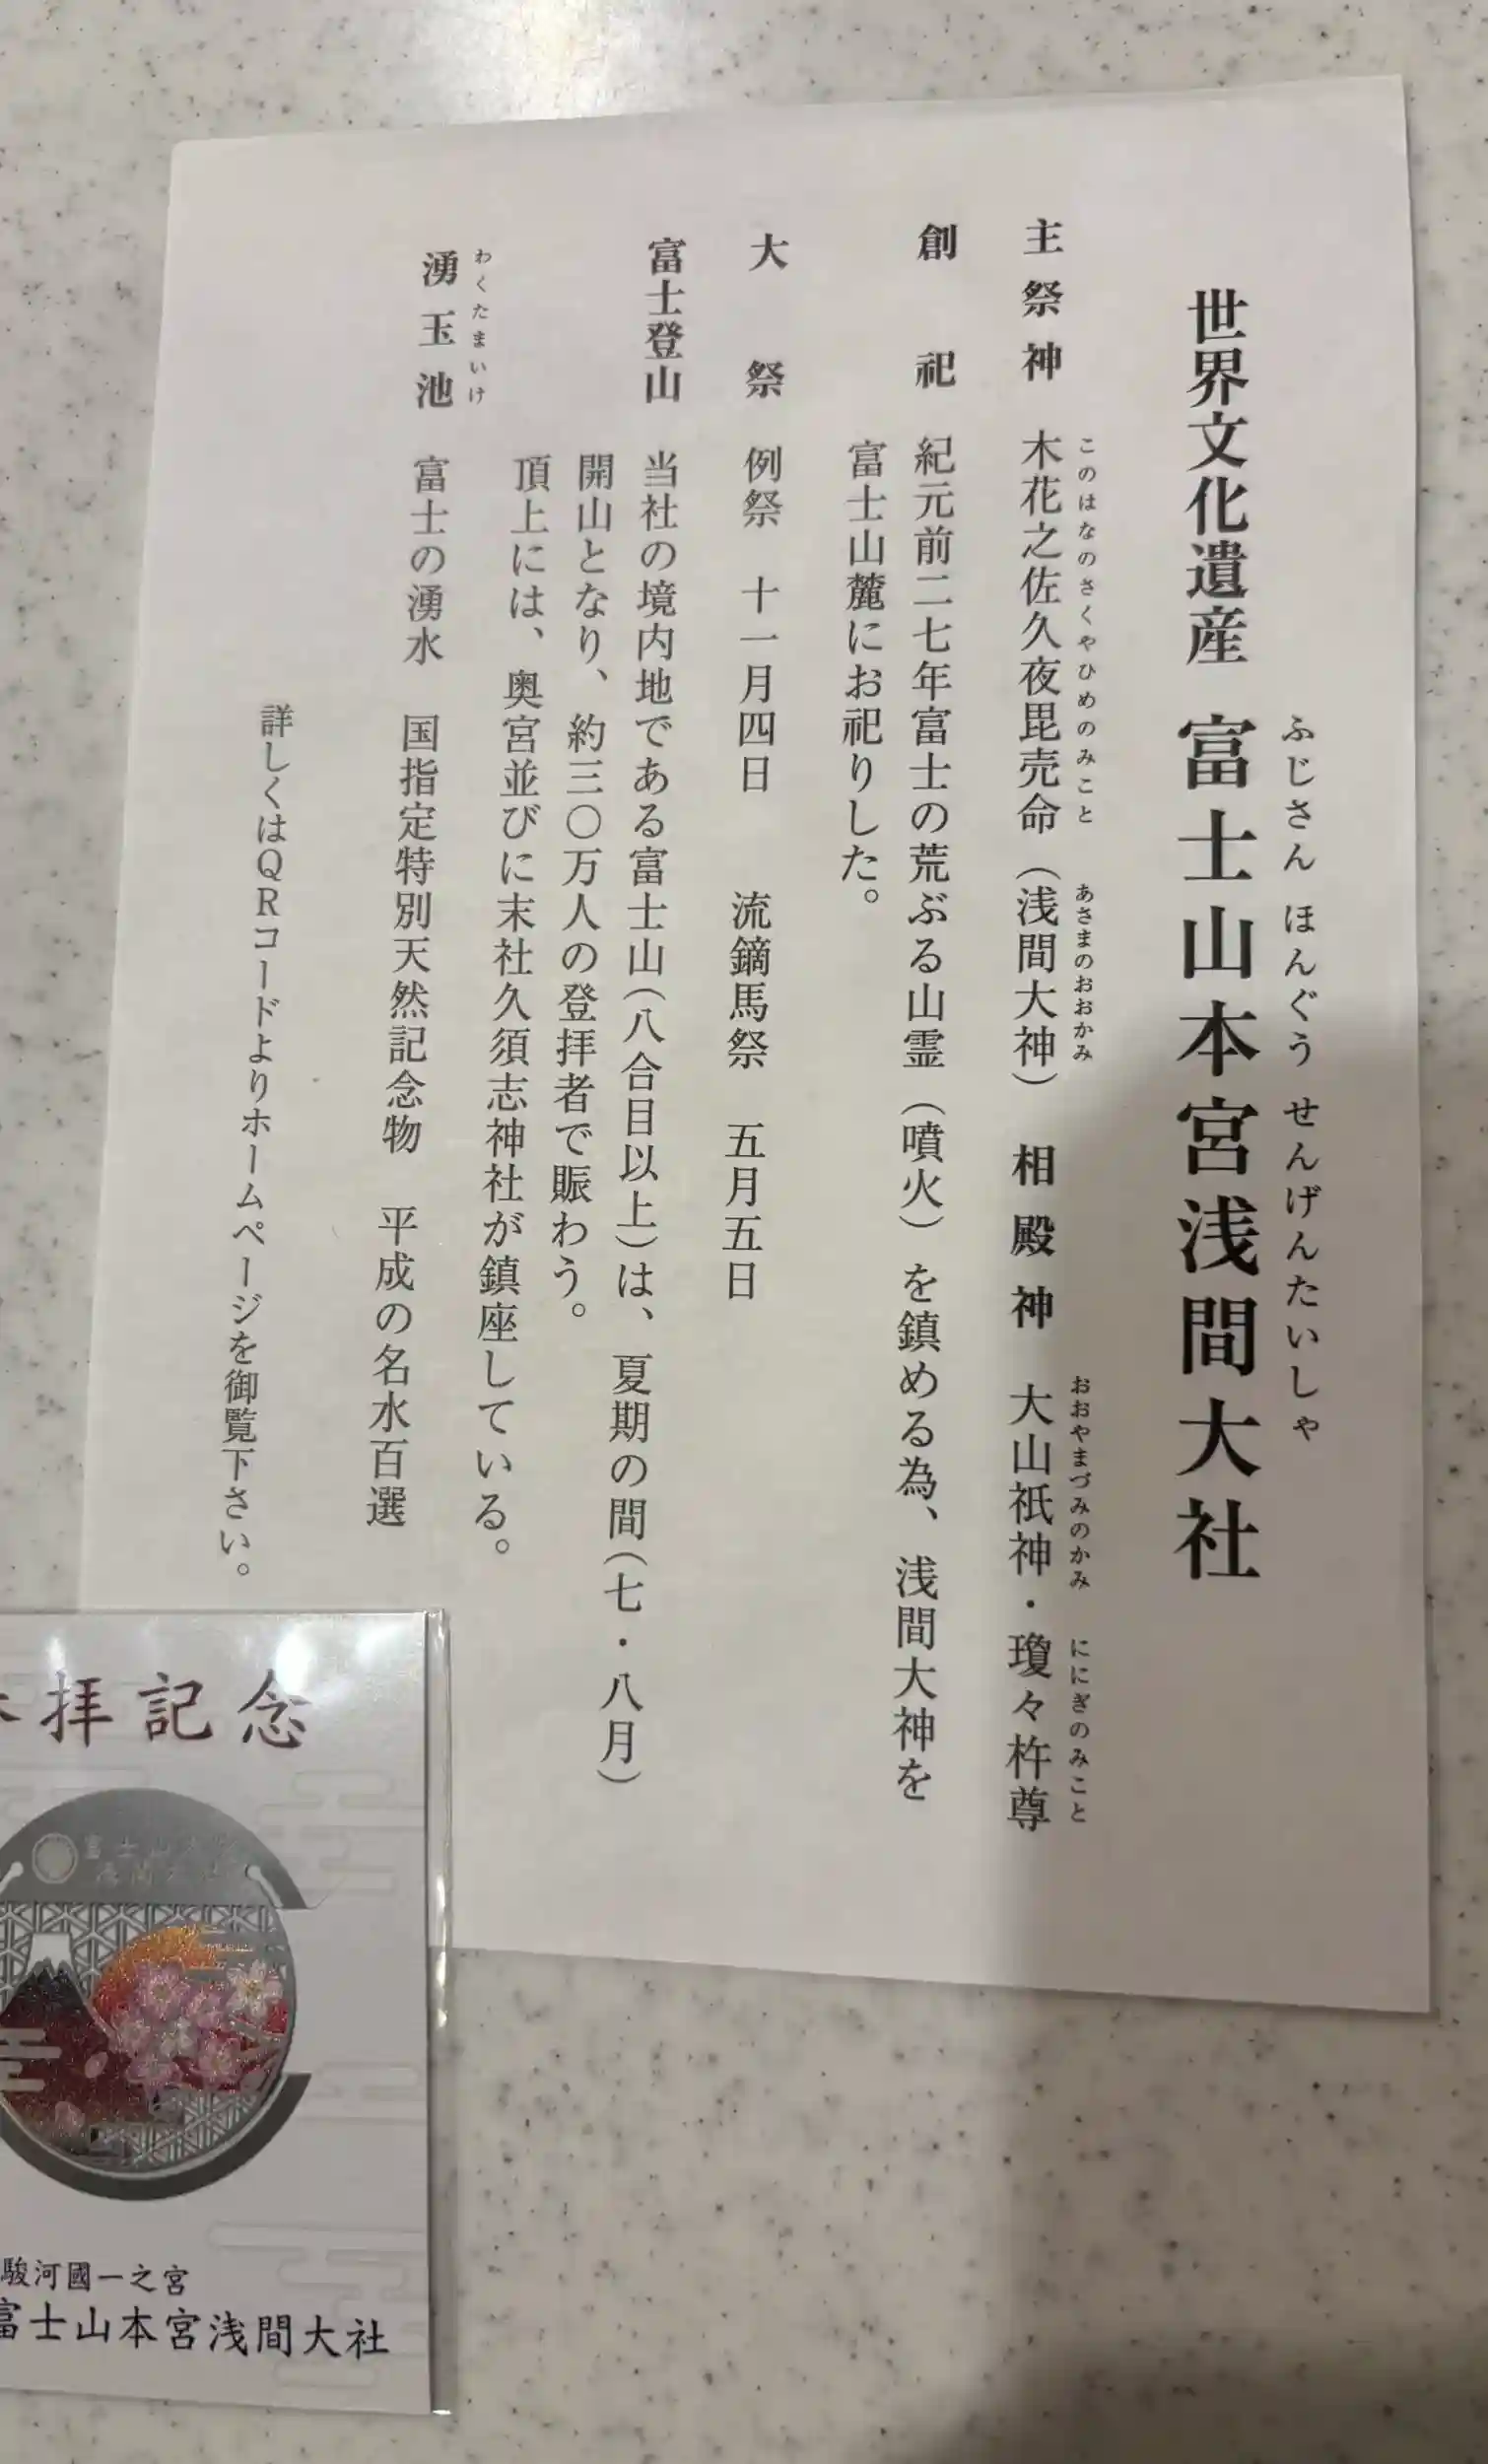 世界文化遺産 富士山本宮浅間大社
ふじさん ほんぐう せんげんたいしゃ
主祭神 木花之佐久夜毘売命（浅間大神） 相殿神 大山祇神・瓊々杵尊
このはなのさくやひめのみこと あさまのおおかみ おおやまづみのかみ ににぎのみこと
創祀 紀元前二七年富士の荒ぶる山霊（噴火）を鎮める為、浅間大神を
富士山麓にお祀りした。
大祭 例祭 十一月四日 流鏑馬祭 五月五日
富士登山 当社の境内地である富士山（八合目以上）は、夏期の間（七・八月）
開山となり、約三〇万人の登拝者で賑わう。
頂上には、奥宮並びに末社久須志神社が鎮座している。
湧玉池 富士の湧水 国指定特別天然記念物 平成の名水百選
わくたまいけ
詳しくはＱＲコードよりホームページを御覧下さい。
拝記念
富士山本宮
浅間大社
駿河國一之宮
富士山本宮浅間大社